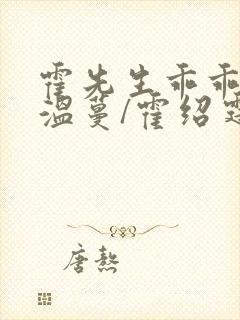 霍先生乖乖
温蔓/霍绍霆
唐熬